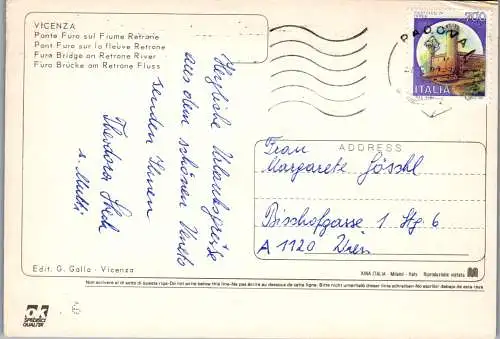 VICENZA
Ponte Furo sul Fiume Retrone
Pont Furo sur la fleuve Retrone
Furo Bridge on Retrone River
Furo Brücke am Retrone Fluss
Herzliche Urlaubsgrüsse
aus dem schönen Veneto
senden Ihnen
Theodora
u. Mutti
PADOVA
700
ITALIA
ADDRESS
Frau
Margarete Gössl
Bischofgasse 1 Stg. 6
A 1120 Wien
Edit. G. Gallo - Vicenza
KINA ITALIA - Milano - Italy Riproduzione vietata
Non scrivere al di sotto di questa riga - Do not write below this line - Ne pas écrire au dessous de cette ligne. Bitte nicht unterhalb dieser Linie schreiben - No escribir debajo de esta raya
SPECIAL
QUALITÄT